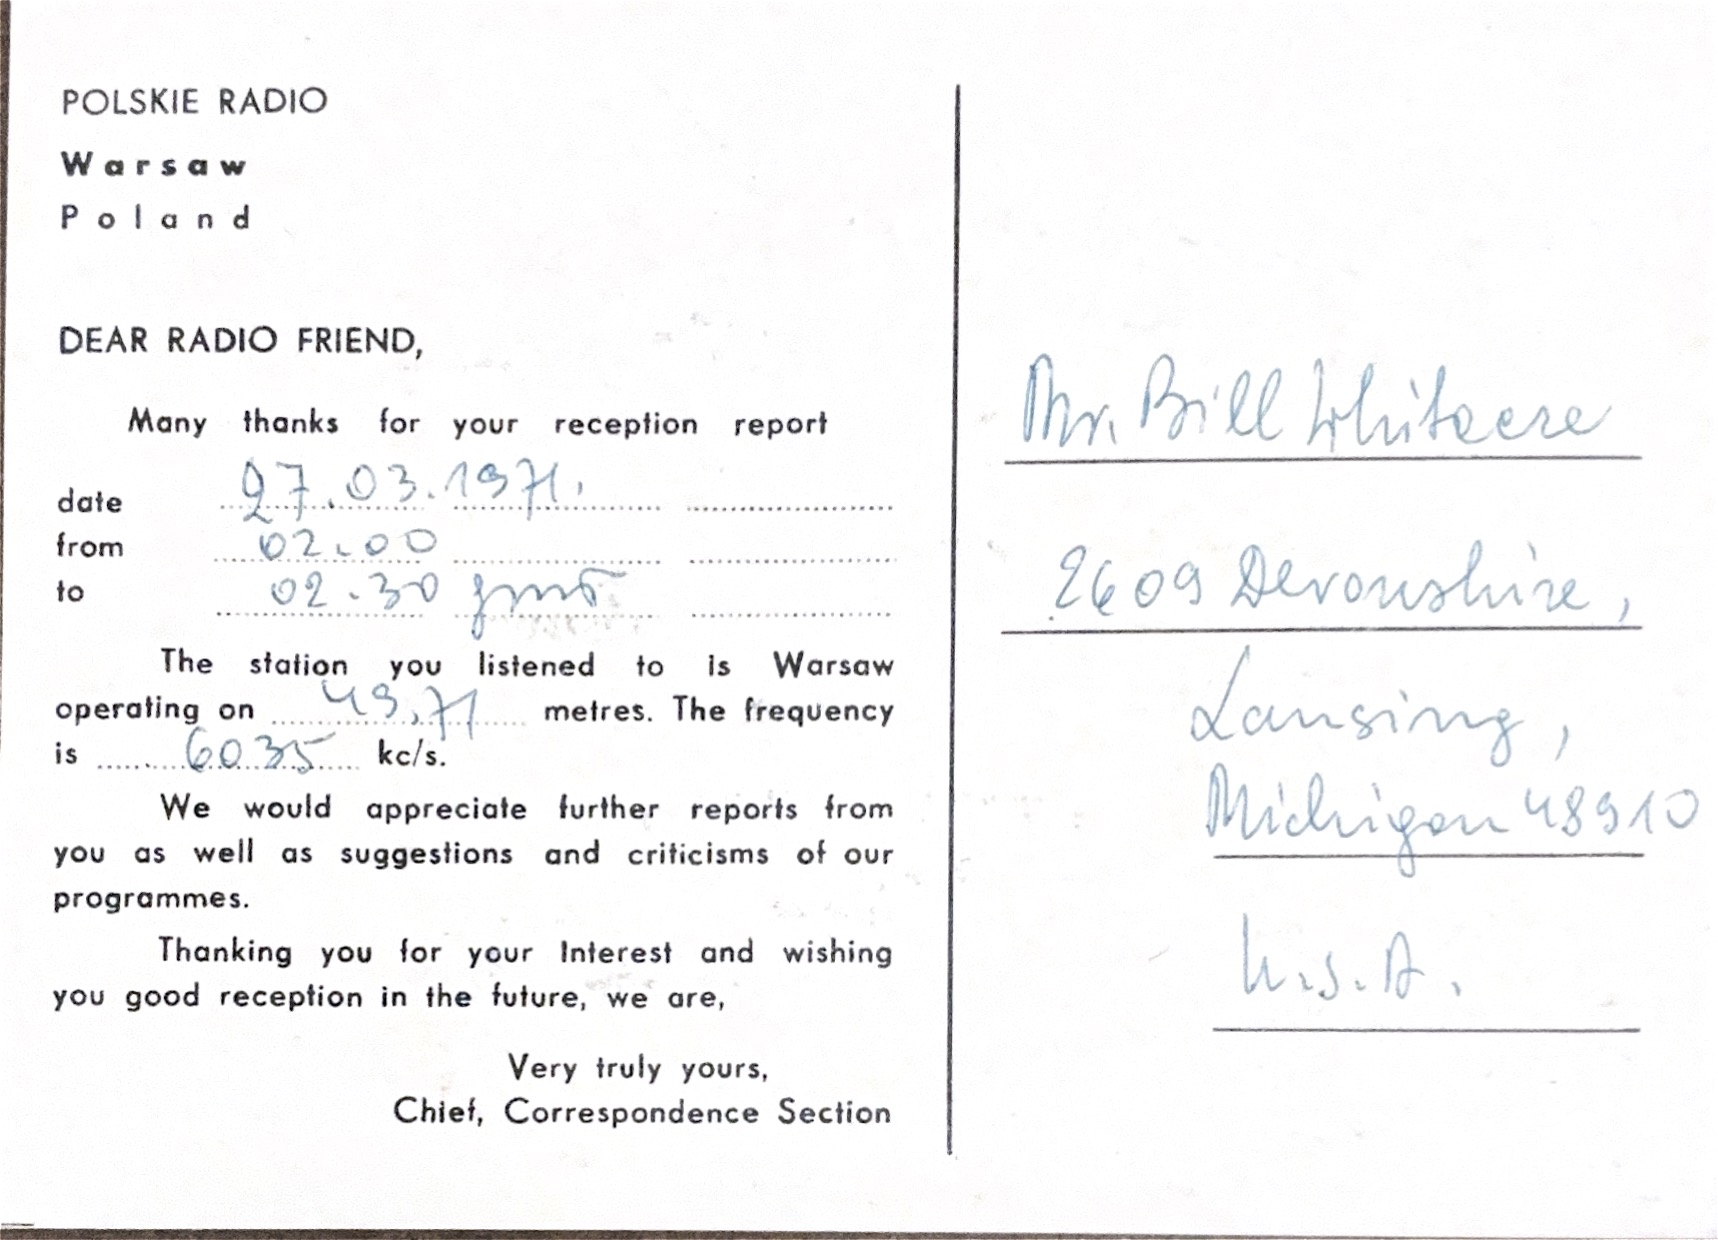 POLSKIE RADIO
Warsaw
Poland
DEAR RADIO FRIEND,
Many thanks for your reception report
date 27.03.1971.
from 02.00
to 02.30 gmt
The station you listened to is Warsaw
operating on 49,71 metres. The frequency
is 6035 kc/s.
We would appreciate further reports from
you as well as suggestions and criticisms of our
programmes.
Thanking you for your Interest and wishing
you good reception in the future, we are,
Very truly yours,
Chief, Correspondence Section
Mr. Bill Whitacre
2609 Devonshire,
Lansing,
Michigan 48910
U.S.A.